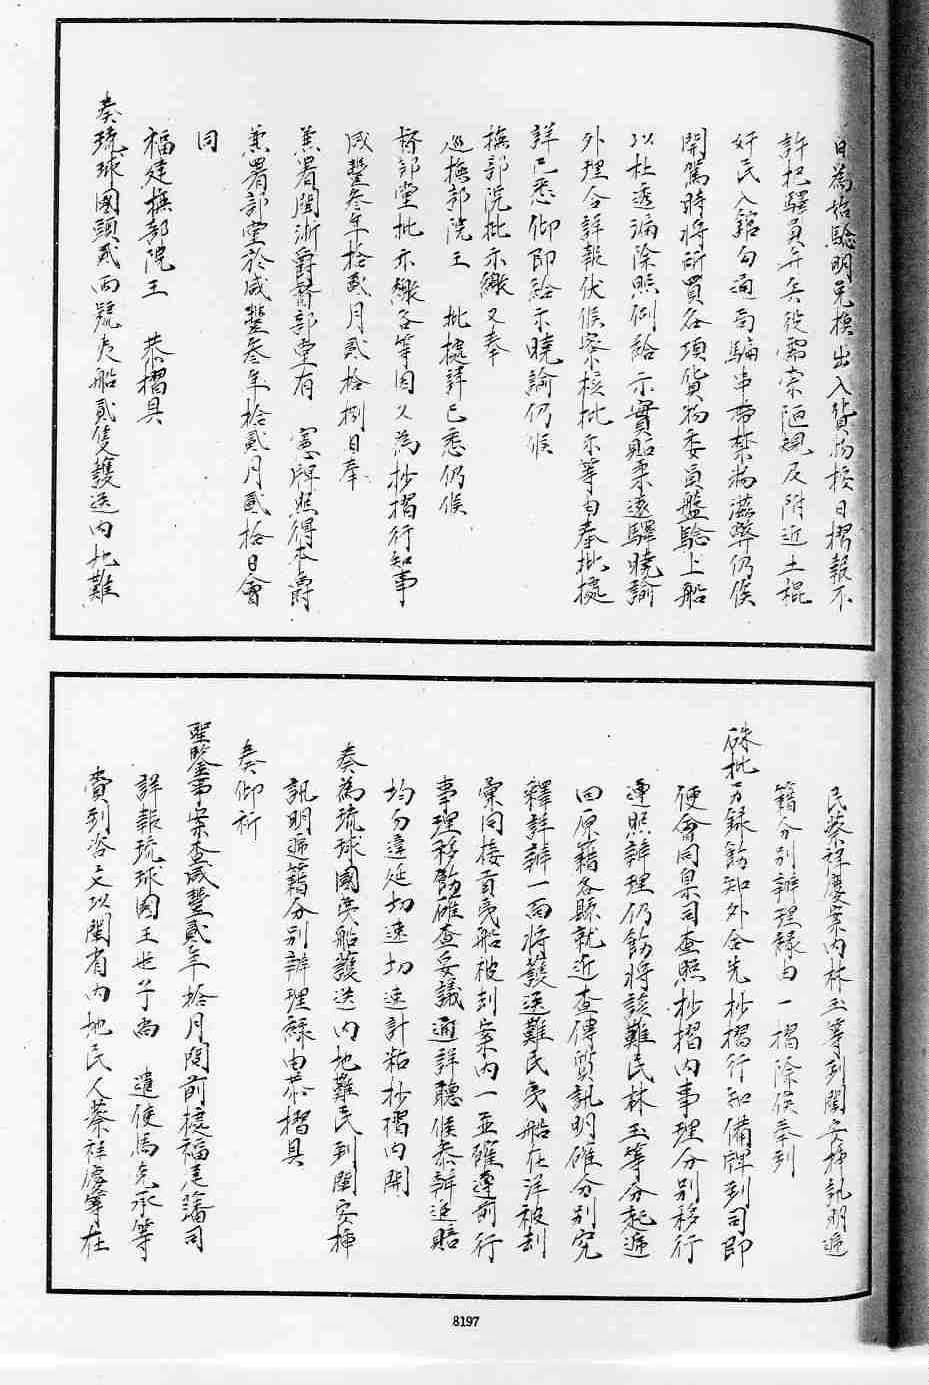 日為始驗明兌換出入貨物按日摺報不
許把驛員弁兵役需索陋規及附近土棍
奸民入館勾通局騙串帶禁物滋弊仍俟
開駕時將所買各項貨物委員盤驗上船
以杜透漏除照例給示實貼柔遠驛曉諭
外理合詳報伏候察核批示等由奉批據
詳已悉仰即給示曉諭仍候
撫部院批示繳又奉
巡撫部院王 批據詳已悉仍候
督部堂批示繳各等因又為抄摺行知事
咸豐叁年拾貳月貳拾捌日奉
兼署閩浙爵督部堂有 憲牌照得本爵
兼署部堂於咸豐叁年拾貳月貳拾日會
同
福建撫部院王 恭摺具
奏琉球國頭貳兩號夷船貳隻護送內地難
民蔡祥慶案內林玉等到閩安插訊明遞
籍分別辦理緣由一摺除俟奉到
硃批另錄飭知外合先抄摺行知備牌到司即
便會同臬司查照抄摺內事理分別移行
遵照辦理仍飭將該難民林玉等分起遞
回原籍各縣就近查傳質訊明確分別究
釋詳辦一面將護送難民夷船在洋被刦
彙同接貢夷船被刦案內一並確遵前行
事理移飭確查妥議通詳聽候恭辦追賠
均勿違延切速切速計粘抄摺內開
奏為琉球國夷船護送內地難民到閩安插
訊明遞籍分別辦理緣由恭摺具
奏仰祈
聖鑒事案查咸豐貳年拾月間前據福建藩司
詳報琉球國王世子尚 遣使馬克承等
賫到咨文以閩省內地民人蔡祥慶等在
8197